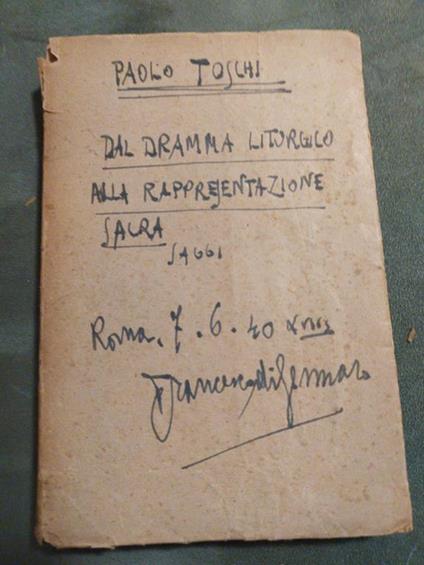 PAOLO TOSCHI
DAL DRAMMA LITURGICO
ALLA RAPPRESENTAZIONE
SACRA
SAGGI
Roma. 7. 6. 40 XVIII
Francesco di Gennaro